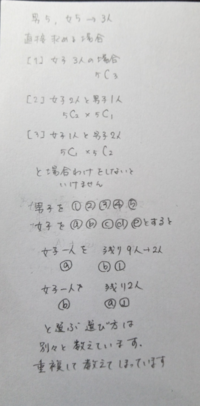 男5, 女5 → 3人
直接求める場合
[1] 女子3人の場合
₅C₃
[2] 女子2人と男子1人
₅C₂ × ₅C₁
[3] 女子1人と男子2人
₅C₁ × ₅C₂
と場合わけをしないと
いけません
男子を ①②③④⑤
女子を ⓐⓑⓒⓓⓔとすると
女子一人を 残り9人→2人
ⓐ ⓑ①
女子一人を 残り2人
ⓑ ⓐ①
と選ぶ選び方は
別々と数えています.
重複して数えてしまっています